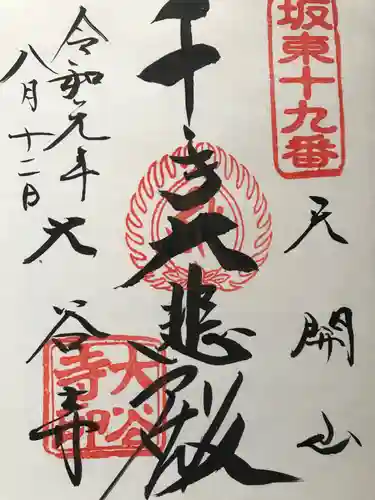 坂東十九番
天開山
千手大悲殿
令和元年
八月十二日
大谷寺
大谷寺印